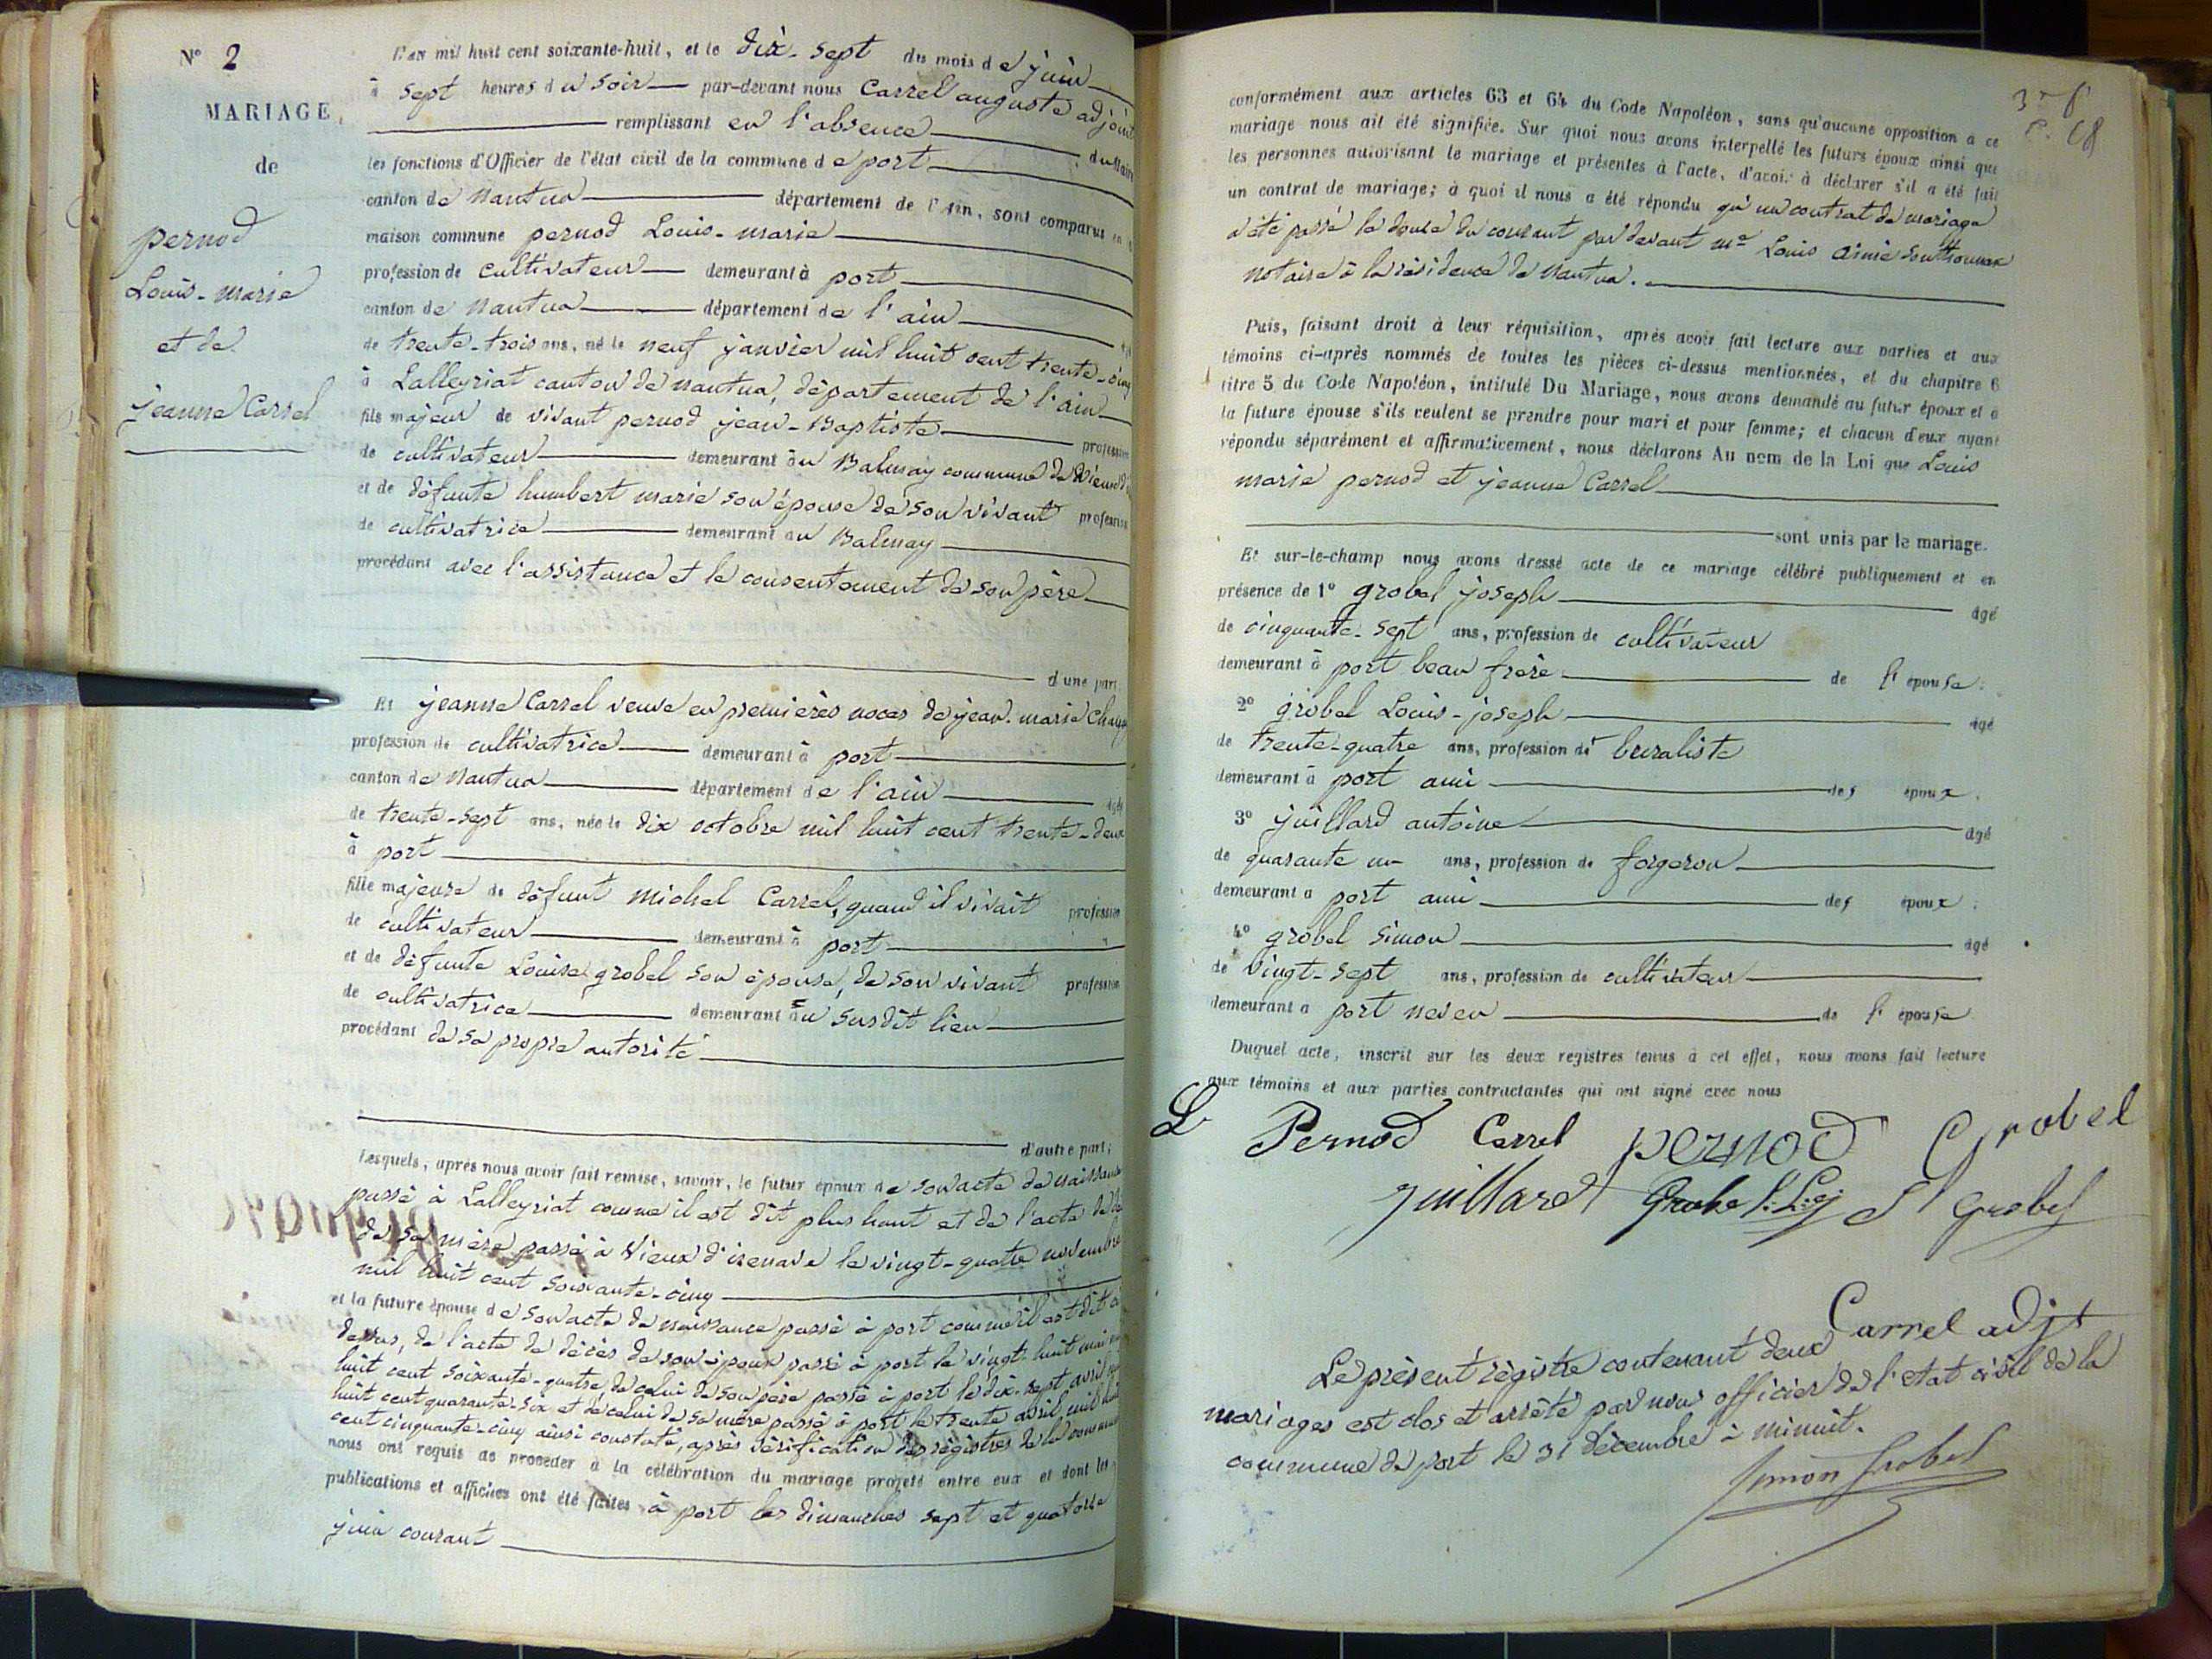 N° 2
MARIAGE
de
pernod
Louis-marie
et de
jeanne Carrel
L'an mil huit cent soixante-huit, et le dix-sept du mois de juin
à sept heures du soir par-devant nous Carrel auguste adjoint
remplissant en l'absence du Maire
les fonctions d'Officier de l'état civil de la commune de port
canton de Nantua département de l'Ain, sont comparus en la
maison commune pernod Louis-marie
profession de cultivateur demeurant à port
canton de Nantua département de l'ain
de trente-trois ans, né le neuf janvier mil huit cent trente-cinq
à Lalleyriat canton de Nantua, département de l'ain
fils majeur de vivant pernod jean-Baptiste profession
de cultivateur demeurant au Balmay commune de Vieux d'i
et de défunte humbert marie son épouse de son vivant profession
de cultivatrice demeurant au Balmay
procédant avec l'assistance et le consentement de son père
d'une part.
Et jeanne Carrel veuve en premières noces de jean-marie
profession de cultivatrice demeurant à port
canton de Nantua département de l'ain âgée
de trente-sept ans, née le dix octobre mil huit cent trente-deux
à port
fille majeure de défunt Michel Carrel, quand il vivait profession
de cultivateur demeurant à port
et de défunte Louise grobel son épouse, de son vivant profession
de cultivatrice demeurant au susdit lieu
procédant de sa propre autorité
d'autre part;
Lesquels, après nous avoir fait remise, savoir, le futur époux de son acte de naissance
passé à Lalleyriat comme il est dit plus haut et de l'acte de
de sa mère passé à Vieux d'izenave le vingt-quatre novembre
mil huit cent soixante-cinq
et la future épouse de son acte de naissance passé à port comme il est dit ci
dessus, de l'acte de décès de son époux passé à port le vingt-huit mai
huit cent soixante-quatre de celui de son père passé à port le dix-sept avril
huit cent quarante-six et de celui de sa mère passé à port le trente avril mil huit
cent cinquante-cinq ainsi constaté, après vérification des régistres de la commune
nous ont requis de procéder à la célébration du mariage projeté entre eux et dont les
publications et affiches ont été faites à port les dimanches sept et quatorze
juin courant
3e f
P. C8
conformément aux articles 63 et 64 du Code Napoléon, sans qu'aucune opposition à ce
mariage nous ait été signifiée. Sur quoi nous avons interpellé les futurs époux ainsi que
les personnes autorisant le mariage et présentes à l'acte, d'avoir à déclarer s'il a été fait
un contrat de mariage; à quoi il nous a été répondu qu'un contrat de mariage
a été passé le douze du courant par devant me Louis Aimé
notaire à la résidence de Nantua.
Puis, faisant droit à leur réquisition, après avoir fait lecture aux parties et aux
témoins ci-après nommés de toutes les pièces ci-dessus mentionnées, et du chapitre 6
titre 5 du Code Napoléon, intitulé Du Mariage, nous avons demandé au futur époux et à
la future épouse s'ils veulent se prendre pour mari et pour femme; et chacun d'eux ayant
répondu séparément et affirmativement, nous déclarons Au nom de la Loi que Louis
marie pernod et jeanne Carrel
sont unis par le mariage.
Et sur-le-champ nous avons dressé acte de ce mariage célébré publiquement et en
présence de 1° grobel joseph âgé
de cinquante-sept ans, profession de cultivateur
demeurant à port beau frère de l'épouse;
2° grobel Louis-joseph âgé
de trente-quatre ans, profession de buraliste
demeurant à port ami des époux.
3° juillard antoine âgé
de quarante un ans, profession de forgeron
demeurant à port ami des époux;
4° grobel simon âgé
de vingt-sept ans, profession de cultivateur
demeurant à port neveu de l'épouse
Duquel acte, inscrit sur les deux registres tenus à cet effet, nous avons fait lecture
aux témoins et aux parties contractantes qui ont signé avec nous
L Pernod Carrel pernod Grobel
juillard Grobel S Grobel
Carrel adjt
Le présent régistre contenant deux
mariages est clos et arrêté par nous officier de l'état civil de la
commune de port le 31 décembre à minuit.
Simon Grobel